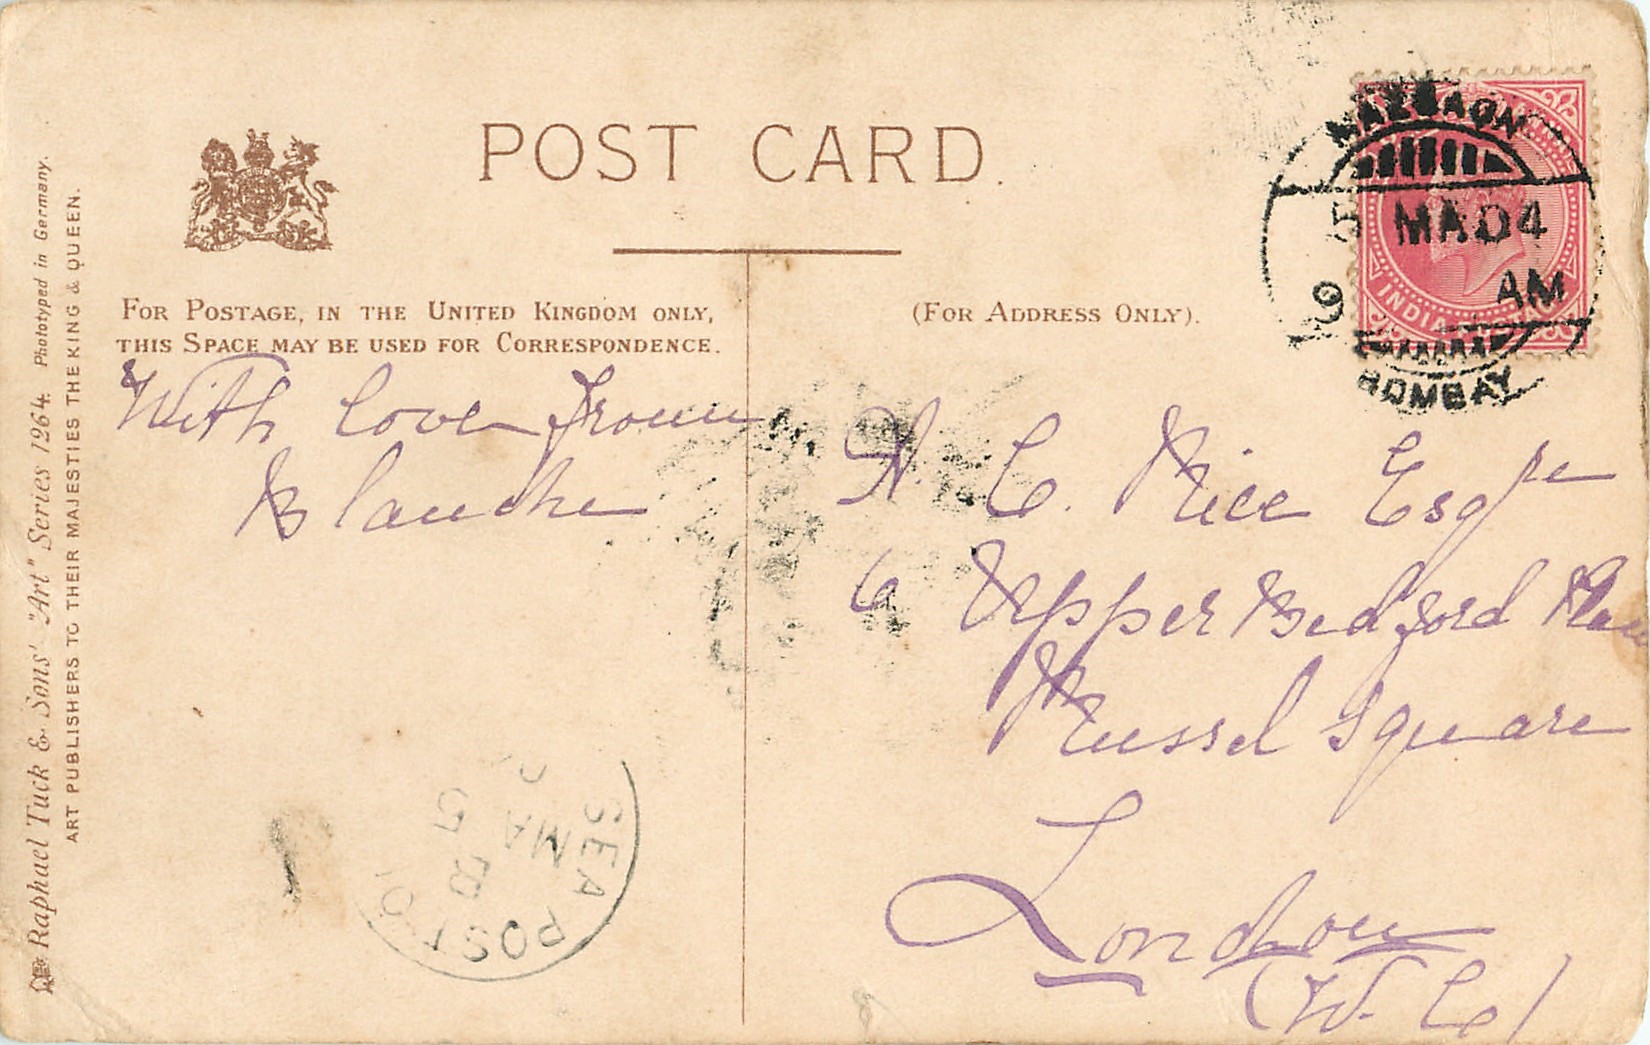 POST CARD.
FOR POSTAGE, IN THE UNITED KINGDOM ONLY,
THIS SPACE MAY BE USED FOR CORRESPONDENCE.
(FOR ADDRESS ONLY).
With love from
Blanche
H. C. Rice Esqre
6 Upper Bedford Place
Russel Square
London
(W. C.)
MAZGAON
5 MA 04
9 AM
BOMBAY
INDIA
SEA POST
MA
Raphael Tuck & Sons' "Art" Series 1264. Phototyped in Germany.
ART PUBLISHERS TO THEIR MAJESTIES THE KING & QUEEN.